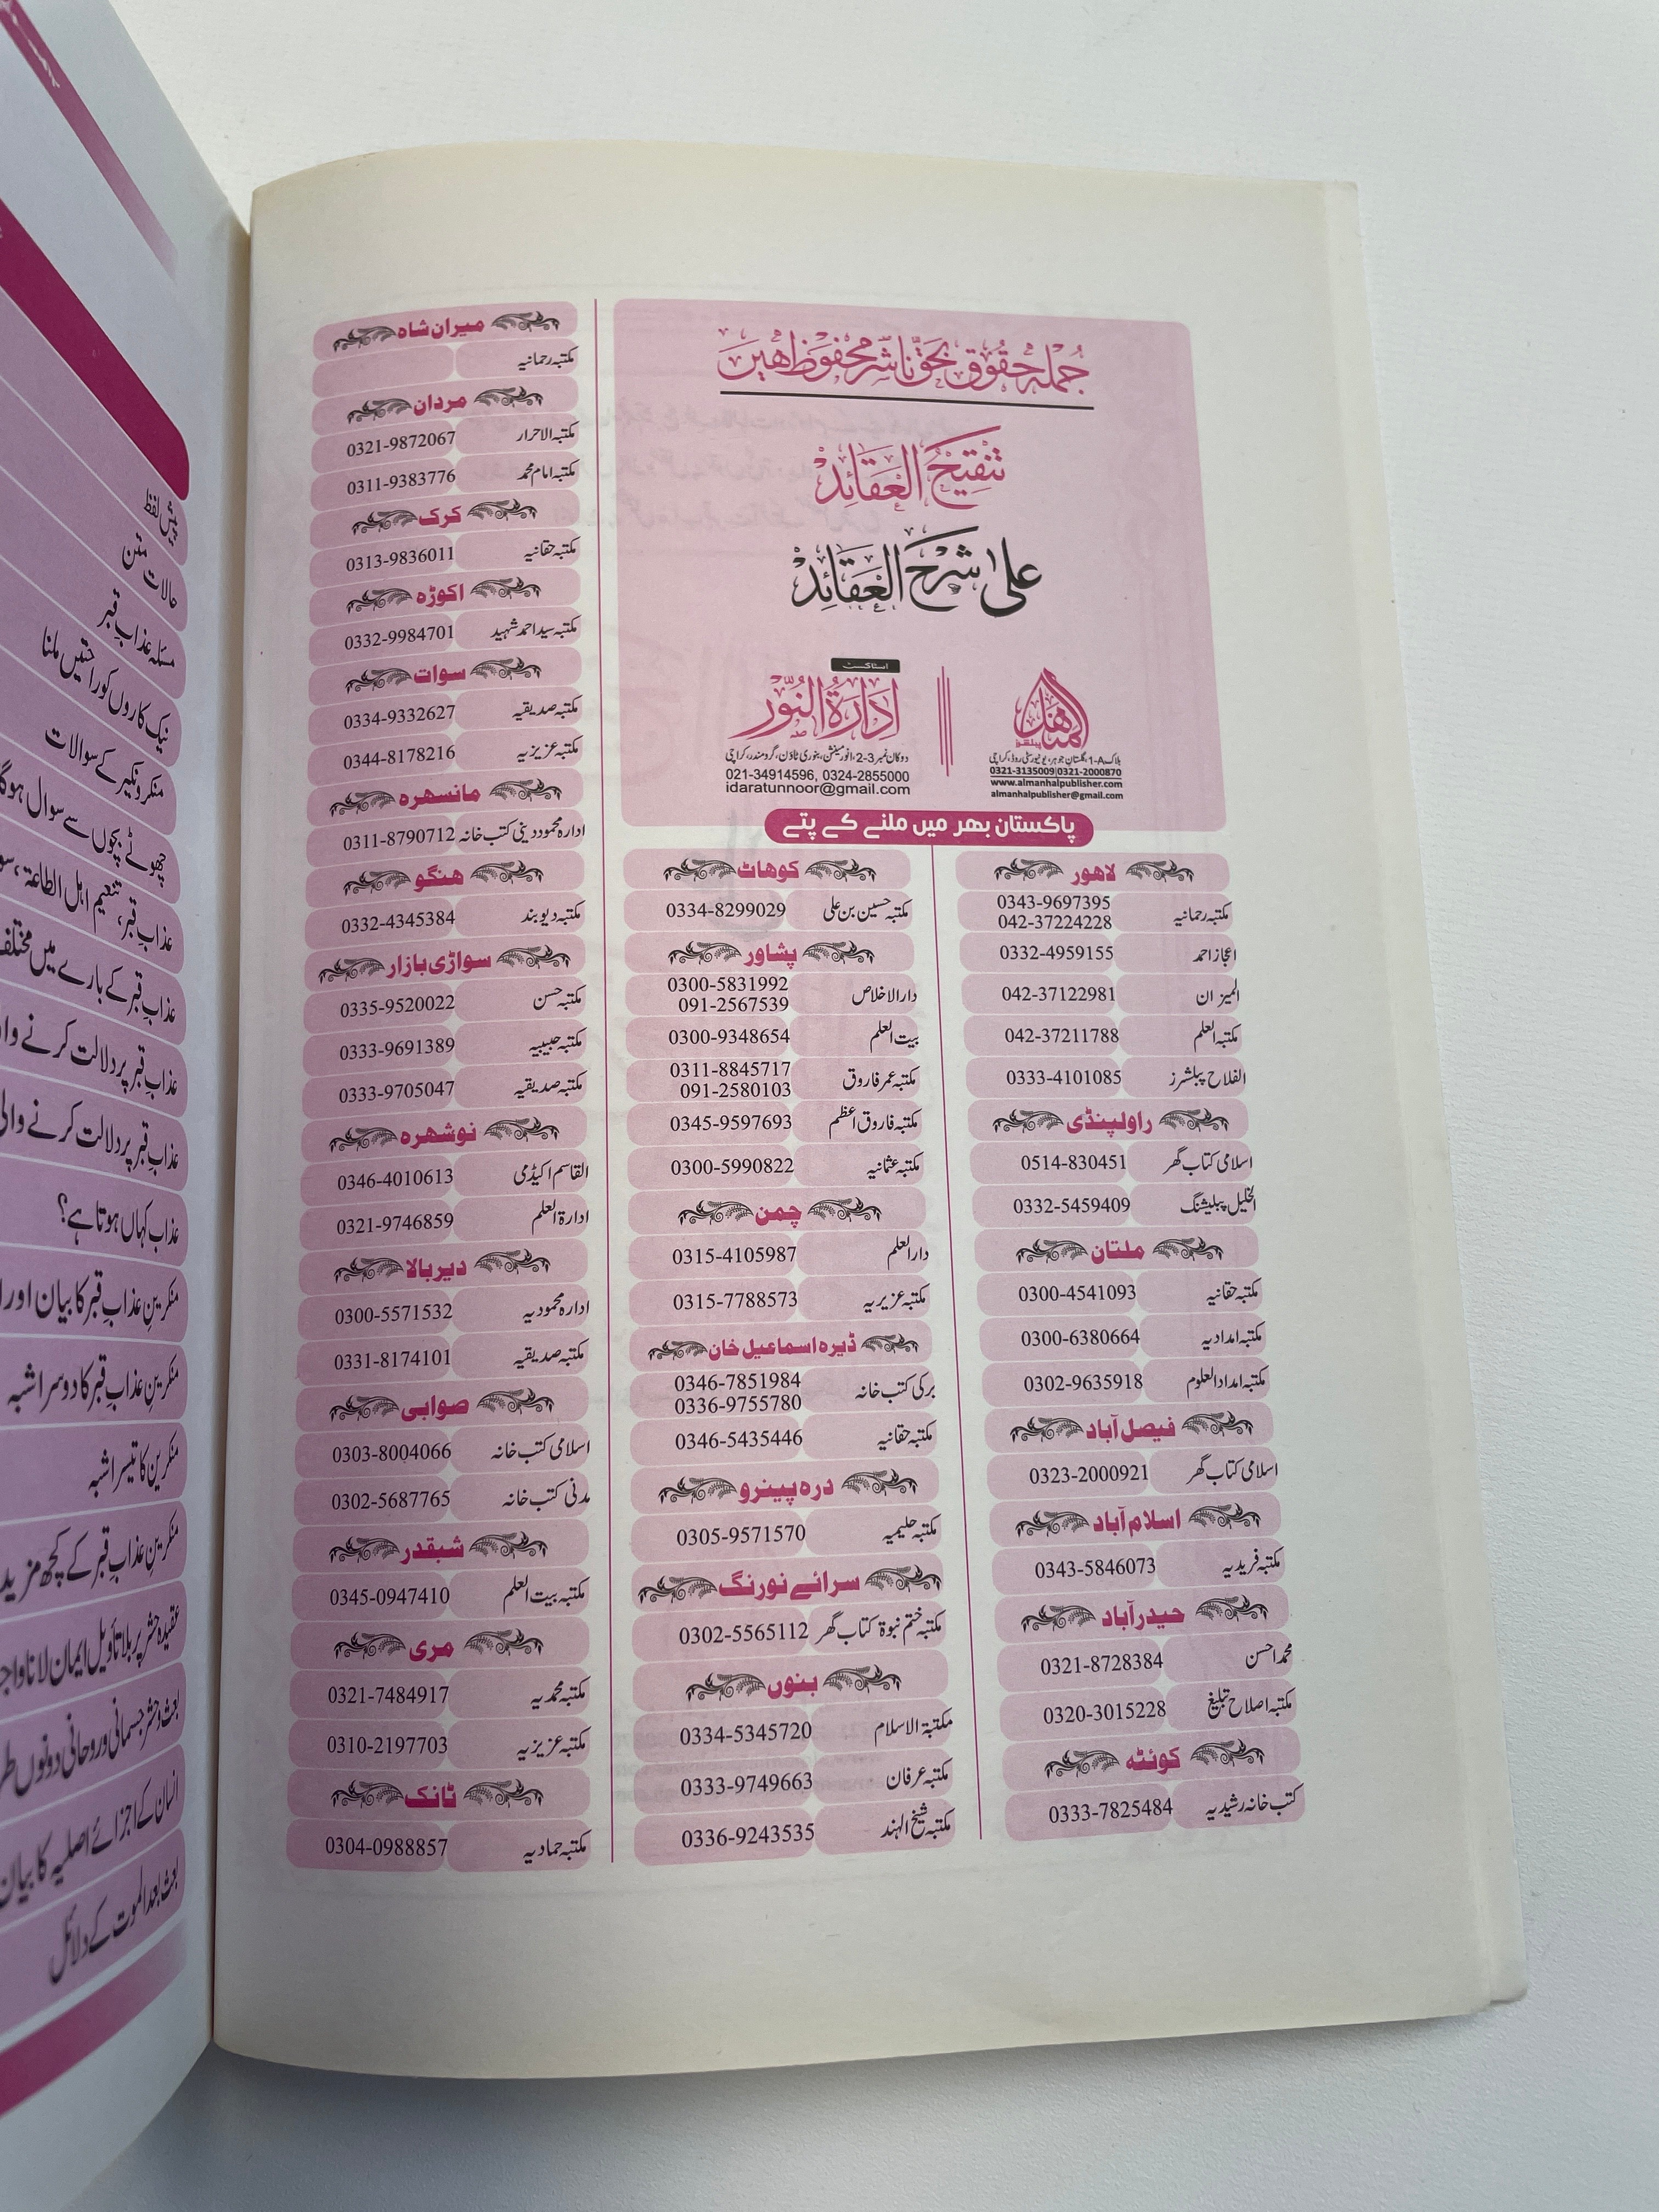 جمله حقوق بحق ناشر محفوظ هیں
تنقیح العقائد
علی شرح العقائد
المنهل پبلشرز
بلاک A-1، گلستان جوہر، یونیورسٹی روڈ، کراچی
0321-3135009|0321-2000870
www.almanhalpublisher.com
almanhalpublisher@gmail.com
اسٹاکسٹ
ادارة النور
دوکان نمبر 3-2، انور مینشن، بنوری ٹاؤن، گرومندر، کراچی
021-34914596, 0324-2855000
idaratunnoor@gmail.com
پاکستان بھر میں ملنے کے پتے
لاهور
مکتبہ رحمانیہ 0343-9697395
042-37224228
اعجاز احمد 0332-4959155
المیزان 042-37122981
مکتبہ العلم 042-37211788
الفلاح پبلشرز 0333-4101085
راولپنڈی
اسلامی کتاب گھر 0514-830451
الخلیل پبلیشنگ 0332-5459409
ملتان
مکتبہ حقانیہ 0300-4541093
مکتبہ امدادیہ 0300-6380664
مکتبہ امداد العلوم 0302-9635918
فیصل آباد
اسلامی کتاب گھر 0323-2000921
اسلام آباد
مکتبہ فریدیہ 0343-5846073
حیدر آباد
محمد احسن 0321-8728384
مکتبہ اصلاح تبلیغ 0320-3015228
کوئٹہ
کتب خانہ رشیدیہ 0333-7825484
کوهاٹ
مکتبہ حسین بن علی 0334-8299029
پشاور
دار الاخلاص 0300-5831992
091-2567539
بیت العلم 0300-9348654
مکتبہ عمر فاروق 0311-8845717
091-2580103
مکتبہ فاروق اعظم 0345-9597693
مکتبہ عثمانیہ 0300-5990822
چمن
دار العلم 0315-4105987
مکتبہ عزیریہ 0315-7788573
ڈیرہ اسماعیل خان
برکی کتب خانہ 0346-7851984
0336-9755780
مکتبہ حقانیہ 0346-5435446
درہ پینرو
مکتبہ حلیمیہ 0305-9571570
سرائے نورنگ
مکتبہ ختم نبوۃ کتاب گھر 0302-5565112
بنوں
مکتبۃ الاسلام 0334-5345720
مکتبہ عرفان 0333-9749663
مکتبہ شیخ الہند 0336-9243535
میران شاہ
مکتبہ رحمانیہ
مردان
مکتبہ الاحرار 0321-9872067
مکتبہ امام محمد 0311-9383776
کرک
مکتبہ حقانیہ 0313-9836011
اکوڑہ
مکتبہ سید احمد شہید 0332-9984701
سوات
مکتبہ صدیقیہ 0334-9332627
مکتبہ عزیزیہ 0344-8178216
مانسهرہ
ادارہ محمود دینی کتب خانہ 0311-8790712
هنگو
مکتبہ دیوبند 0332-4345384
سواڑی بازار
مکتبہ حسن 0335-9520022
مکتبہ حبیبیہ 0333-9691389
مکتبہ صدیقیہ 0333-9705047
نوشهرہ
القاسم اکیڈمی 0346-4010613
ادارۃ العلم 0321-9746859
دیر بالا
ادارہ محمودیہ 0300-5571532
مکتبہ صدیقیہ 0331-8174101
صوابی
اسلامی کتب خانہ 0303-8004066
مدنی کتب خانہ 0302-5687765
شبقدر
مکتبہ بیت العلم 0345-0947410
مری
مکتبہ محمدیہ 0321-7484917
مکتبہ عزیزیہ 0310-2197703
ٹانک
مکتبہ حمادیہ 0304-0988857
پیش لفظ
حالات متن
مسئلہ عذاب قبر
نیک کاروں کو راحتیں ملنا
منکر و نکیر کے سوالات
چھوٹے بچوں سے سوال ہوگا
عذاب قبر، تنعیم اہل الطاعۃ،
عذاب قبر کے بارے میں مختلف
عذاب قبر پر دلالت کرنے
عذاب قبر پر دلالت کرنے والی
عذاب کہاں ہوتا ہے؟
منکرین عذاب قبر کا بیان اور
منکرین عذاب قبر کا دوسرا شبہ
منکرین کا تیسرا شبہ
منکرین عذاب قبر کے کچھ مزید
عقیدہ حشر پر بلا تاویل ایمان لانا
بعث و نشر جسمانی و روحانی دونوں
انسان کے اجزائے اصلیہ کا بیان
بعث بعد الموت کے دلائل